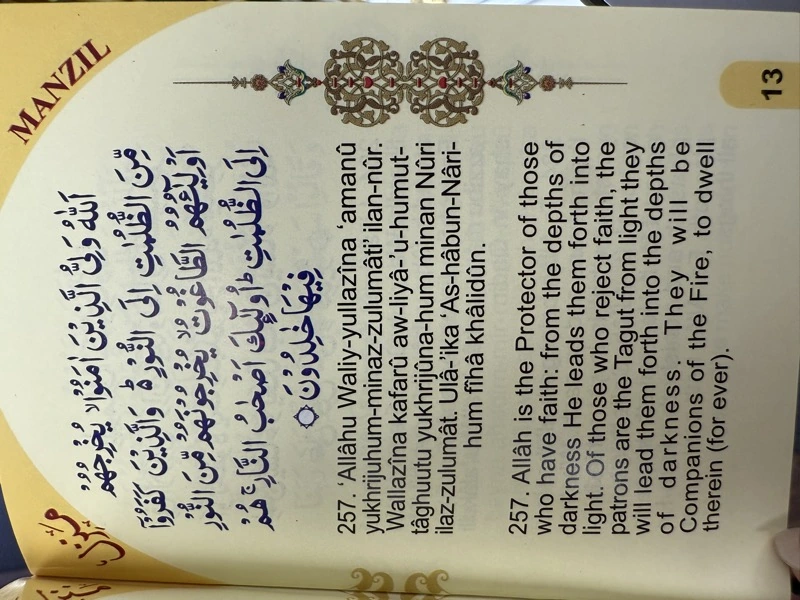 منزل
MANZIL
اَللّٰهُ وَلِيُّ الَّذِيْنَ اٰمَنُوْا ۙ يُخْرِجُهُمْ
مِّنَ الظُّلُمٰتِ اِلَى النُّوْرِ ۬ؕ وَالَّذِيْنَ كَفَرُوْۤا
اَوْلِيٰٓـُٔهُمُ الطَّاغُوْتُ ۙ يُخْرِجُوْنَهُمْ مِّنَ النُّوْرِ
اِلَى الظُّلُمٰتِ ؕ اُولٰٓئِكَ اَصْحٰبُ النَّارِ ۚ هُمْ
فِيْهَا خٰلِدُوْنَ
257. ‘Allâhu Waliy-yullazîna ‘amanû
yukhrijuhum-minaz-zulumâti’ ilan-nûr.
Wallazîna kafarû aw-liyâ-’u-humut-
tâghuutu yukhrijûna-hum minan Nûri
ilaz-zulumât. Ulâ-’ika ‘As-hâbun-Nâri-
hum fîhâ khâlidûn.
257. Allâh is the Protector of those
who have faith: from the depths of
darkness He leads them forth into
light. Of those who reject faith, the
patrons are the Tagut from light they
will lead them forth into the depths
of darkness. They will be
Companions of the Fire, to dwell
therein (for ever).
13